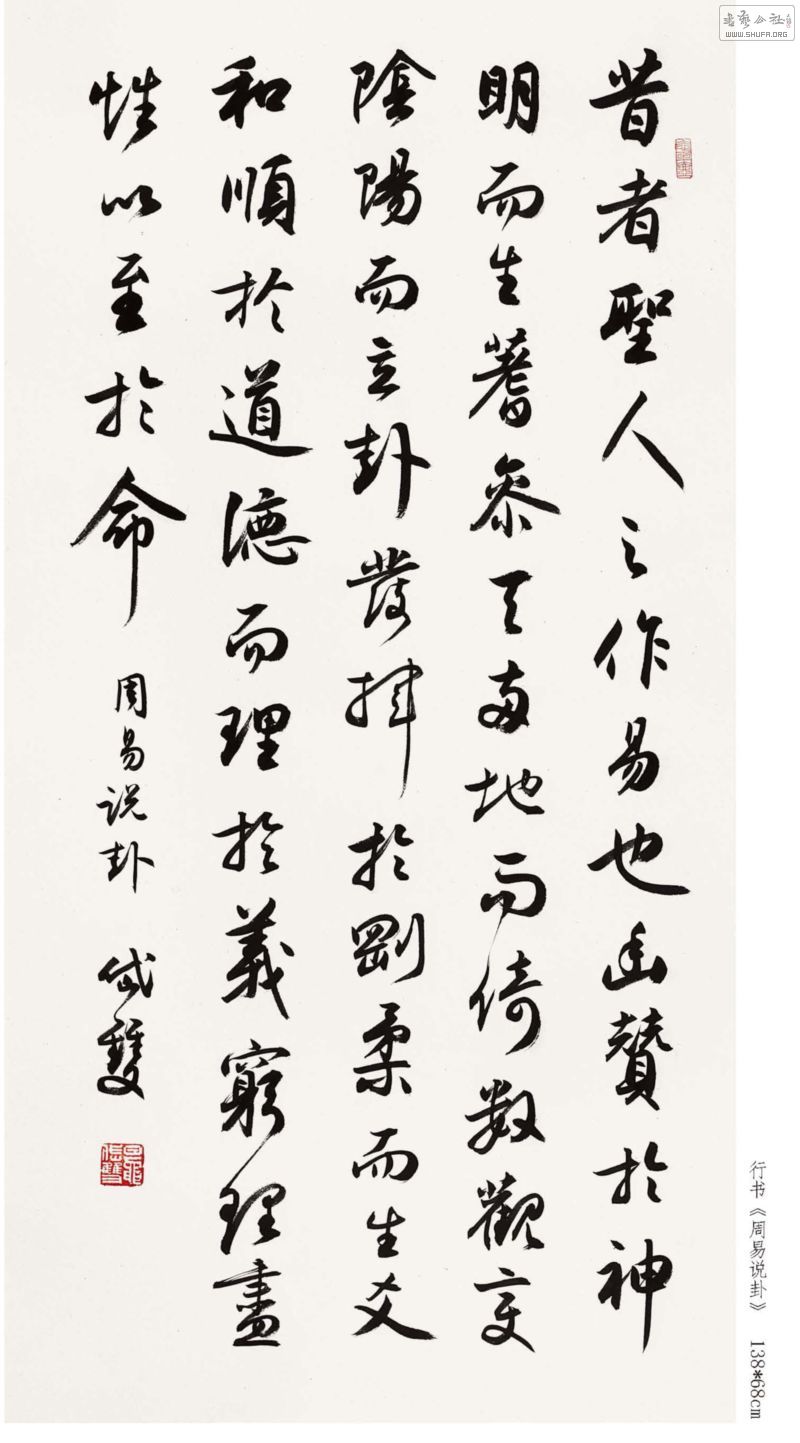 昔者聖人之作易也幽贊於神
明而生蓍参天两地而倚数觀变
陰陽而立卦發揮於剛柔而生爻
和順於道德而理於義窮理盡
性以至於命
周易说卦
行书《周易说卦》 138*68cm
WWW.SHUFA.ORG